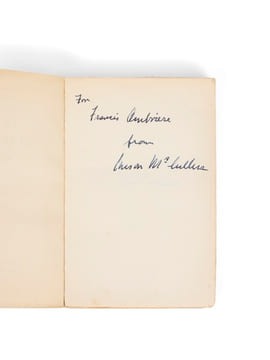 For
Francis Ambrière
from
Carson McCullers